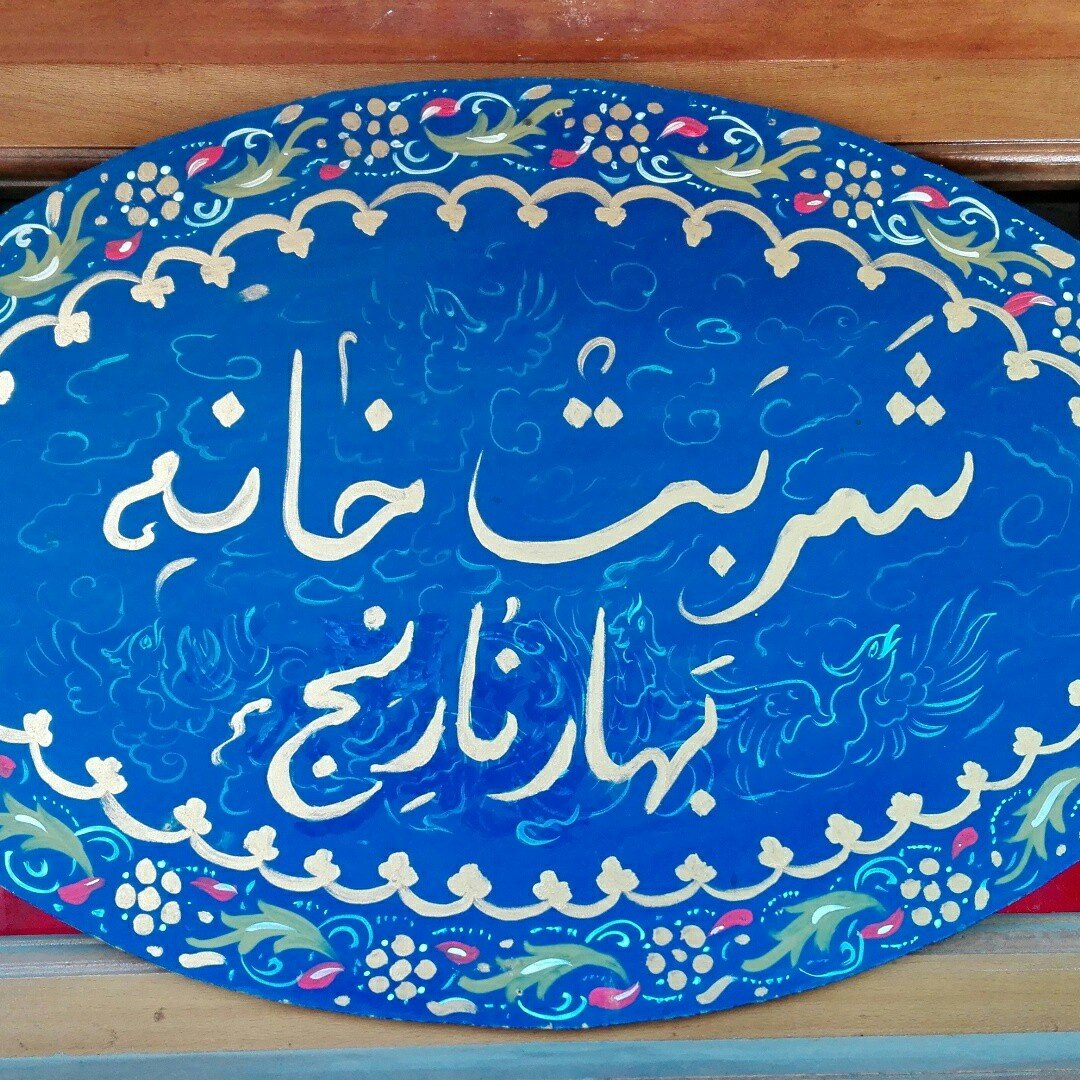 شربت خانه
بهار نارنج